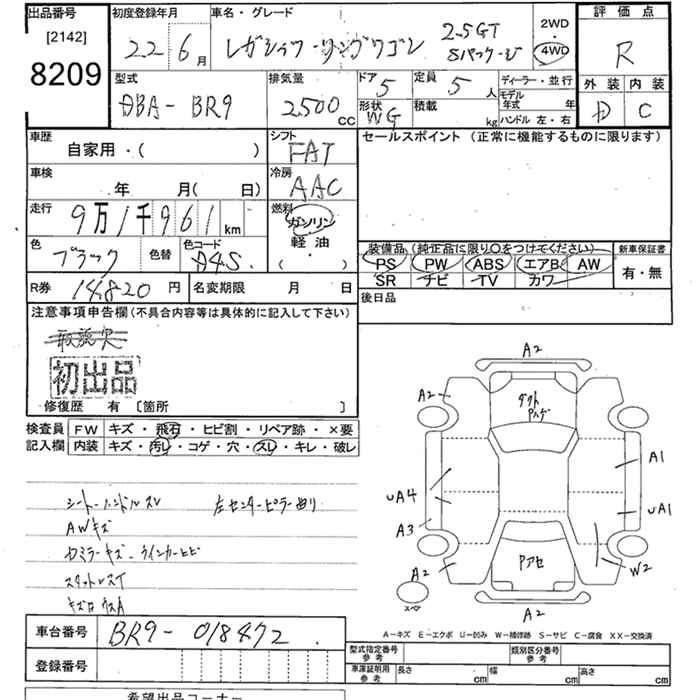 出品番号
[2142]
8209
初度登録年月
22 6月
車名・グレード
レガシィツーリングワゴン
2.5GT
Sパケージ
2WD
4WD
評価点
R
外装 内装
D C
型式
DBA-BR9
排気量
2500 CC
ドア 5
形状 WG
定員 5人
積載 kg
ディーラー・並行
モデル年式 年
ハンドル 左・右
車歴
自家用・( )
シフト
FAT
セールスポイント (正常に機能するものに限ります)
車検
年 月( 日)
冷房
AAC
走行
9万1千961km
燃料
ガソリン
軽油
( ・ )
色
ブラック
色替
色コード
A4S
装備品(純正品に限り○をつけてください)
PS PW ABS エアB AW
SR ナビ TV カワ
新車保証書
有・無
R券 14820円
名変期限 月 日
後日品
注意事項申告欄(不具合内容等は具体的に記入して下さい)
初出品
修復歴 有 [箇所 ]
検査員記入欄
FW キズ・飛石・ヒビ割・リペア跡・×要
内装 キズ・汚レ・コゲ・穴・スレ・キレ・破レ
シートハンドルスレ
左センターピラー曲り
AWキズ
カミラーキズ・ウインカーヒビ
スタットレスT
A2
A2
ダクト
A1
UA4
UA1
A3
A2
Pアセ
W2
スペア
A2
A-キズ E-エクボ U-凹み W-補修跡 S-サビ C-腐食 XX-交換済
車台番号 BR9-018472
登録番号
型式指定番号 参考
類別区分番号 参考
車庫証明用 参考
長さ cm 幅 cm 高さ cm
希望出品コーナー